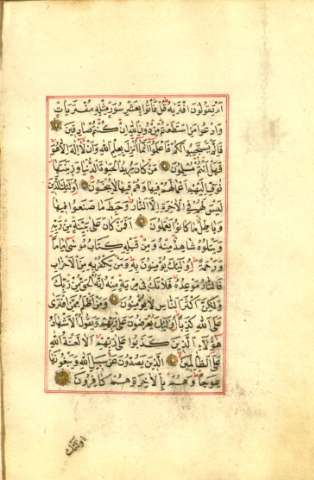 اَمْ يَقُولُونَ افْتَرٰيهُ قُلْ فَأْتُوا بِعَشْرِ سُوَرٍ مِثْلِهِ مُفْتَرَيَاتٍ
وَادْعُوا مَنِ اسْتَطَعْتُمْ مِنْ دُونِ اللّٰهِ اِنْ كُنْتُمْ صَادِقِينَ
فَاِلَّمْ يَسْتَجِيبُوا لَكُمْ فَاعْلَمُوا اَنَّمَا اُنْزِلَ بِعِلْمِ اللّٰهِ وَاَنْ لَا اِلٰهَ اِلَّا هُوَ
فَهَلْ اَنْتُمْ مُسْلِمُونَ مَنْ كَانَ يُرِيدُ الْحَيٰوةَ الدُّنْيَا وَزِينَتَهَا
نُوَفِّ اِلَيْهِمْ اَعْمَالَهُمْ فِيهَا وَهُمْ فِيهَا لَا يُبْخَسُونَ اُولٰئِكَ الَّذِينَ
لَيْسَ لَهُمْ فِى الْاٰخِرَةِ اِلَّا النَّارُ وَحَبِطَ مَا صَنَعُوا فِيهَا
وَبَاطِلٌ مَا كَانُوا يَعْمَلُونَ اَفَمَنْ كَانَ عَلٰى بَيِّنَةٍ مِنْ رَبِّهِ
وَيَتْلُوهُ شَاهِدٌ مِنْهُ وَمِنْ قَبْلِهِ كِتَابُ مُوسٰى اِمَامًا
وَرَحْمَةً اُولٰئِكَ يُؤْمِنُونَ بِهِ وَمَنْ يَكْفُرْ بِهِ مِنَ الْاَحْزَابِ
فَالنَّارُ مَوْعِدُهُ فَلَا تَكُ فِى مِرْيَةٍ مِنْهُ اِنَّهُ الْحَقُّ مِنْ رَبِّكَ
وَلٰكِنَّ اَكْثَرَ النَّاسِ لَا يُؤْمِنُونَ وَمَنْ اَظْلَمُ مِمَّنِ افْتَرٰى
عَلَى اللّٰهِ كَذِبًا اُولٰئِكَ يُعْرَضُونَ عَلٰى رَبِّهِمْ وَيَقُولُ الْاَشْهَادُ
هٰؤُلَاءِ الَّذِينَ كَذَبُوا عَلٰى رَبِّهِمْ اَلَا لَعْنَةُ اللّٰهِ
عَلَى الظَّالِمِينَ الَّذِينَ يَصُدُّونَ عَنْ سَبِيلِ اللّٰهِ وَيَبْغُونَهَا
عِوَجًا وَهُمْ بِالْاٰخِرَةِ هُمْ كَافِرُونَ
اولئك